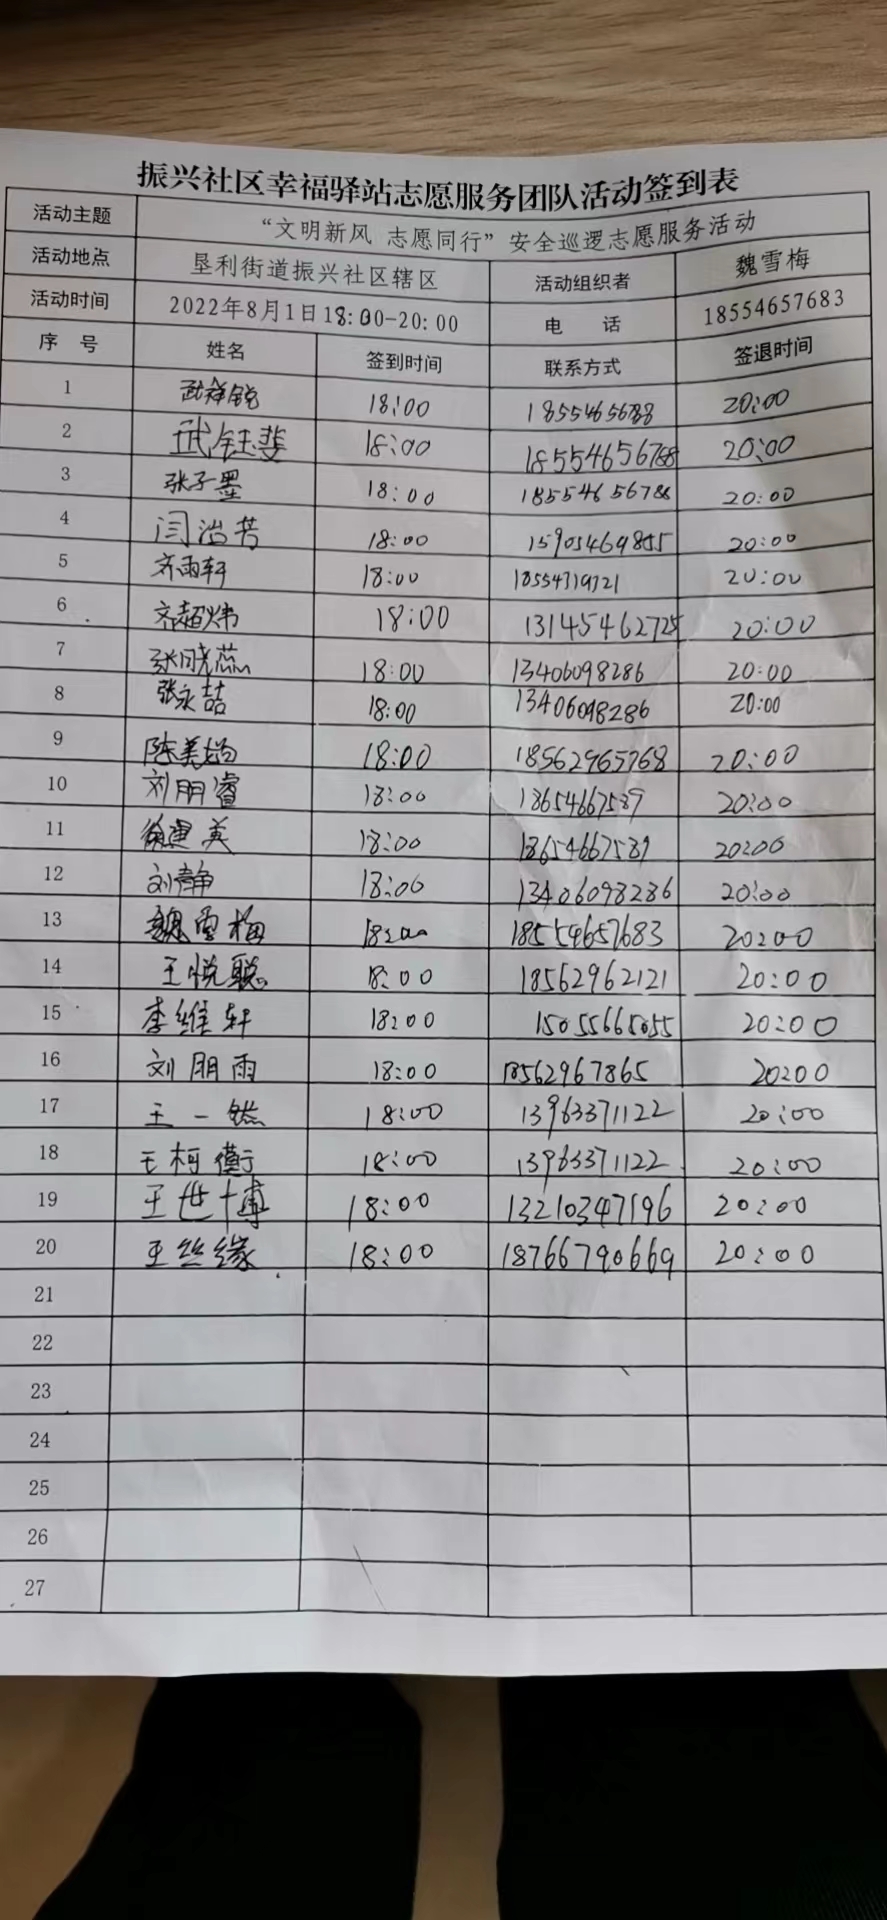 振兴社区幸福驿站志愿服务团队活动签到表
活动主题 “文明新风 志愿同行”安全巡逻志愿服务活动
活动地点 垦利街道振兴社区辖区 活动组织者 魏雪梅
活动时间 2022年8月1日18:00-20:00 电 话 18554657683
序 号 姓名 签到时间 联系方式 签退时间
1 武祥锐 18:00 20:00
2 武钰斐 18:00 18554656788 20:00
3 张子墨 18:00 18554656788 20:00
4 闫治芳 18:00 15905469855 20:00
5 齐雨轩 18:00 18554719721 20:00
6 齐超炜 18:00 13145462725 20:00
7 18:00 13406098286 20:00
8 张永喆 18:00 13406098286 20:00
9 18:00 18562965768 20:00
10 刘朋睿 18:00 18654667589 20:00
11 徐建英 18:00 18654667589 20:00
12 刘静 18:00 13406098286 20:00
13 魏雪梅 18:00 18554657683 20:00
14 王悦聪 18:00 18562962121 20:00
15 李维轩 18:00 15055665055 20:00
16 刘朋雨 18:00 18562967865 20:00
17 王一然 18:00 13963371122 20:00
18 王柯衡 18:00 13963371122 20:00
19 王世博 18:00 13210347196 20:00
20 王丝缘 18:00 18766790669 20:00
21
22
23
24
25
26
27